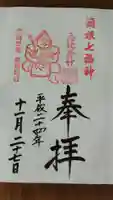 箱根七福神
奉拝
平成二十四年
十一月二十七日